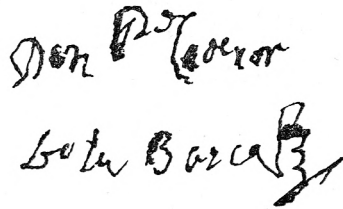 Don Pº Calderon
de la Barca